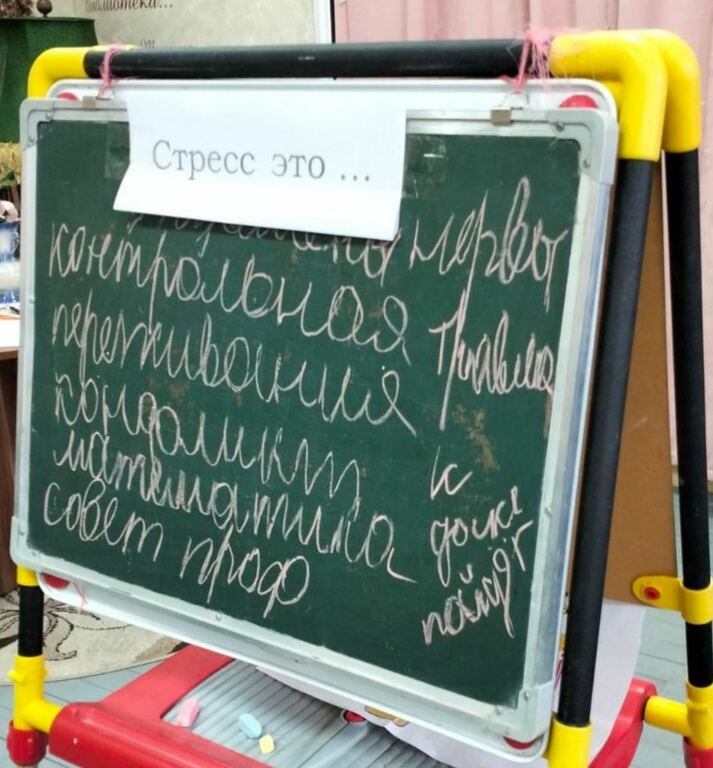 библиотека...
Стресс это ...
нервы
контрольная
травма
переживания
конфликты
математика
совет проф
к
доске
пойдёт